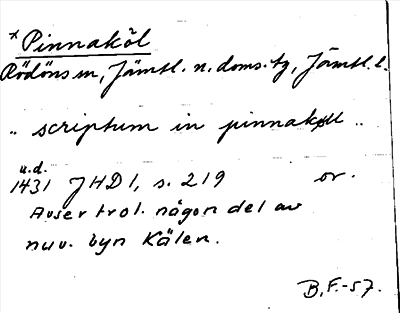 *Pinnaköl
Rödöns sn, Jämtl. n. doms.tg, Jämtl. l.
.. scriptum in pinnaköll ..
u.d.
1431 JHD 1, s. 219 or.
Avser trol. någon del av
nuv. byn Kälen.
B.F.-57.